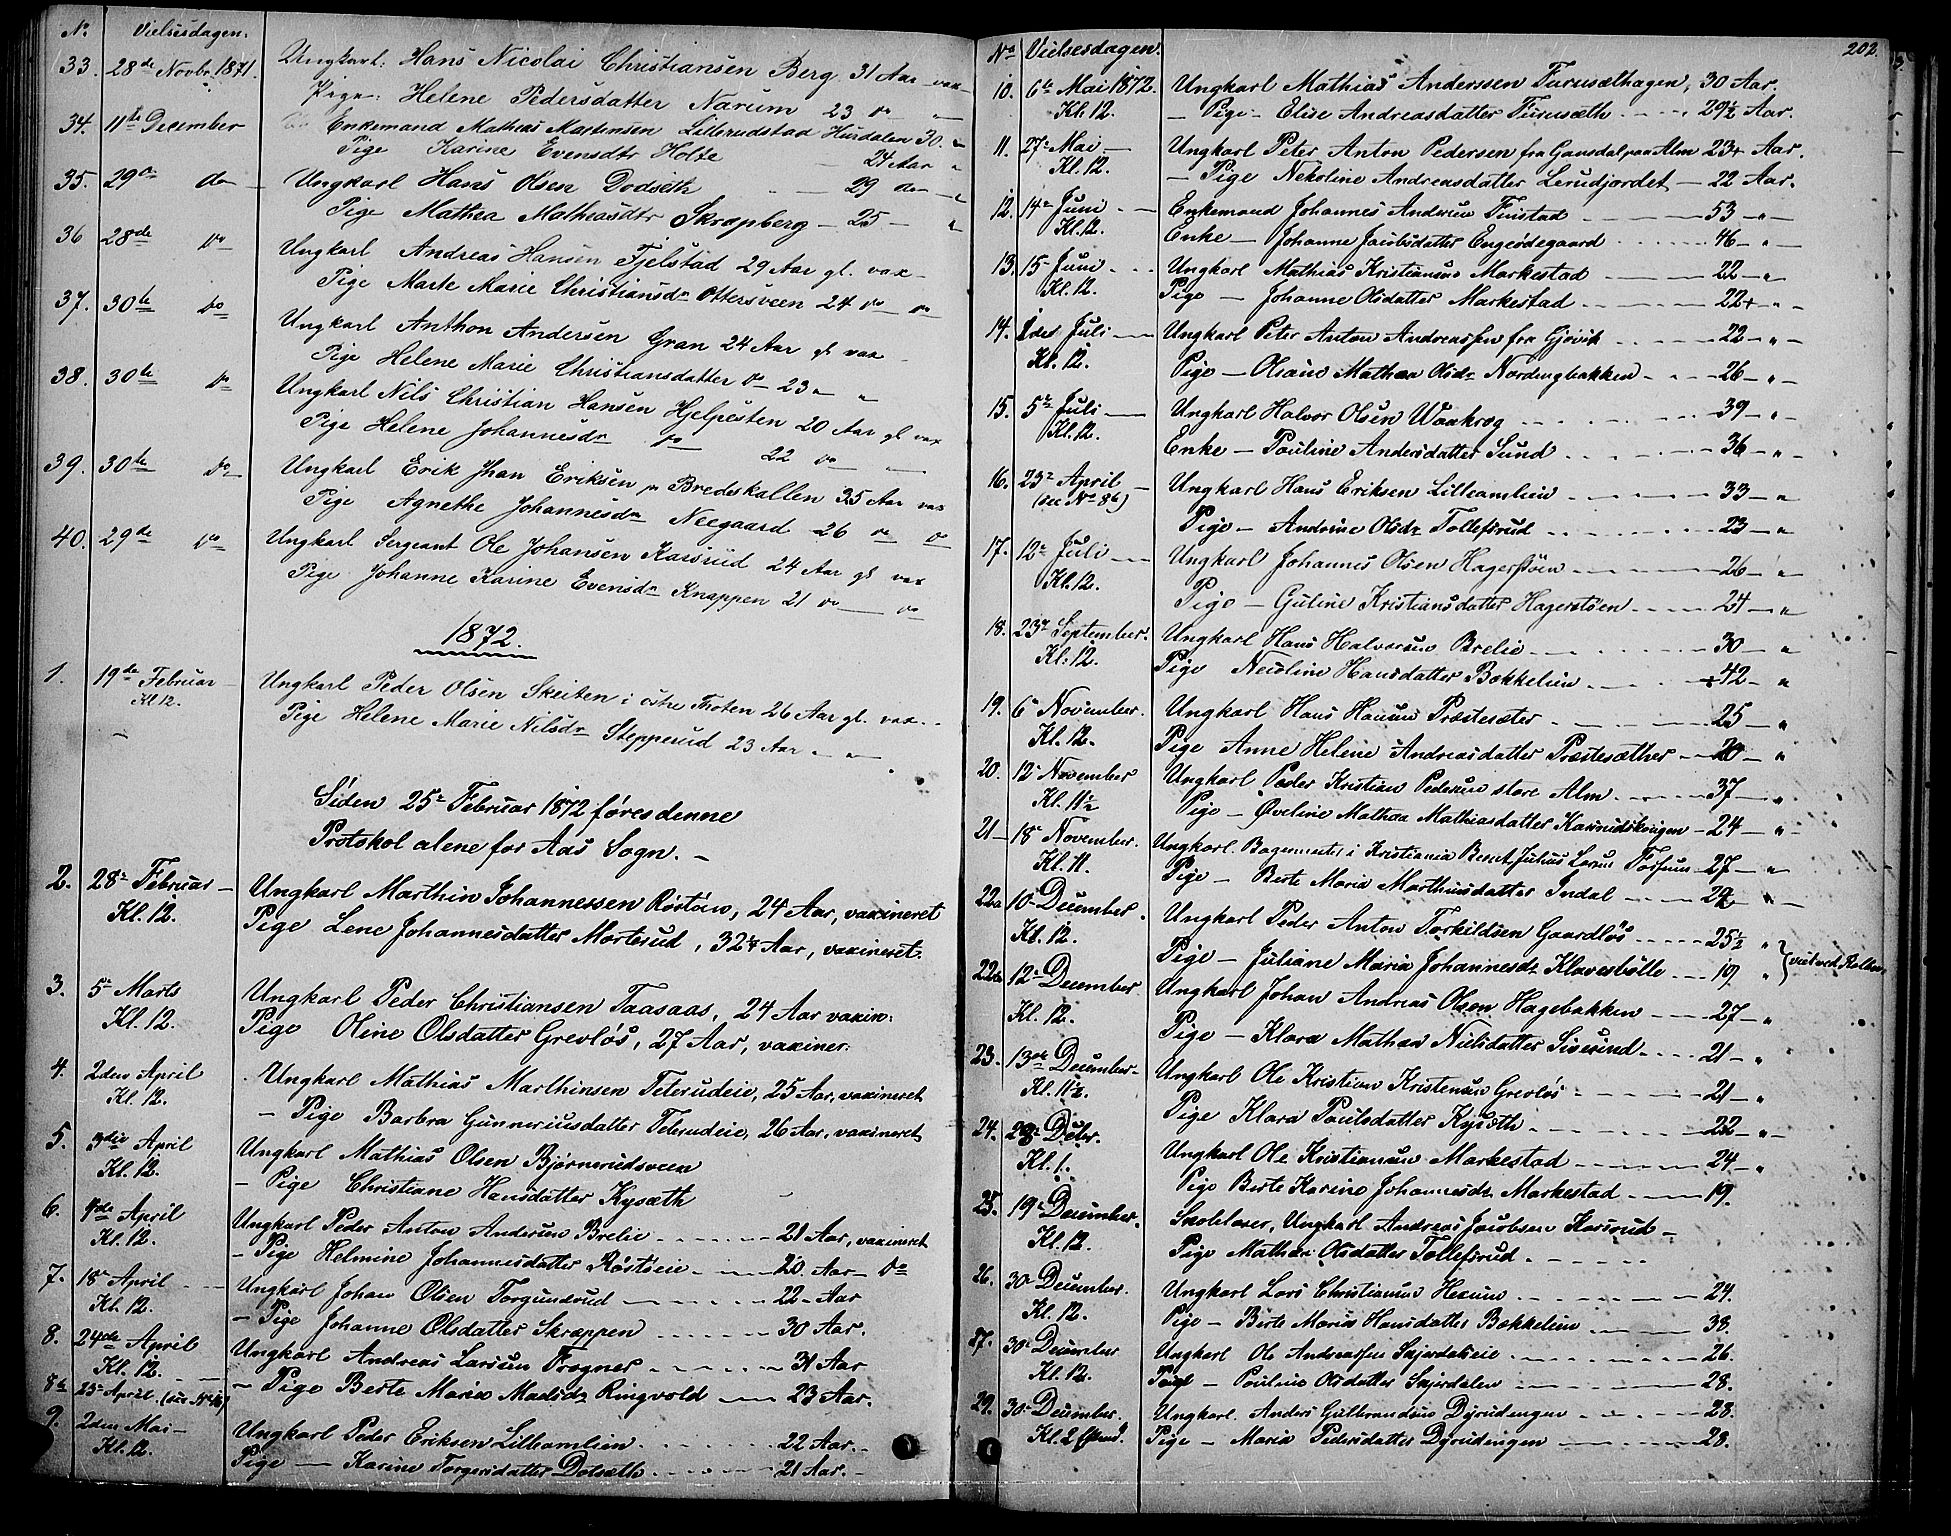 No Vielsesdagen.
33. 28de Novbr. 1871. Ungkarl: Hans Nicolai Christiansen Berg 31 Aar vax
Pige: Helene Pedersdatter Narum 23 do
34. 11te December Enkemand Mathias Martensen Lillerudstad Hurdalen 30. "
Pige Karine Evensdtr Holte 24 Aar "
35. 29de do Ungkarl Hans Olsen Dodseth 29 do
Pige Mathea Mathiasdtr Skrapberg 25 — "
36 28de do Ungkarl Andreas Hansen Fjelstad 29 Aar gl. vax
Pige Marte Marie Christiansdr Ottersveen 24 do do
37. 30te do Ungkarl Anthon Andersen Gran 24 Aar gl vax
Pige Helene Marie Christiansdatter do 23 " "
38. 30te do Ungkarl Nils Christian Hansen Hjelpesten 20 Aar gl vax
Pige Helene Johannesdr do 22 do
39. 30te do Ungkarl Erik Jhan Eriksen Bredskallen 35 Aar vax
Pige Agnethe Johannesdr Neegaard 26 do do
40. 29de do Ungkarl Sergeant Ole Johansen Karsrud 24 Aar gl vax
Pige Johanne Karine Evensdr Knappen 21 do do
1872.
1. 19de Februar Ungkarl Peder Olsen Skeiten i østre Thoten 26 Aar gl. vax.
Kl 12. Pige Helene Marie Nilsdr Stepperud 23 Aar " "
Siden 25r Februar 1872 føres denne
Protokol alene for Aas Sogn. —
2. 28r Februar — Ungkarl Marthin Johannessen Røstøen, 24 Aar, vaxineret
Kl. 12. Pige Lene Johannesdatter Morterud, 32¼ Aar, vaxineret.
3. 5r Marts Ungkarl Peder Christiansen Taasaas, 24 Aar vaxin:
Kl. 12. Pige Oline Olsdatter Grevløs, 27 Aar, vaxiner:
4. 2den April Ungkarl Mathias Marthinsen Teterudeie, 25 Aar, vaxineret
Kl. 12. — Pige Barbra Gunneriusdatter Teterudeie, 26 Aar, vaxineret
5. 3die April Ungkarl Mathias Olsen Bjørnerudsveen
Kl. 12. — Pige Christiane Hansdatter Kysæth
6. 4de April Ungkarl Peder Anton Andersen Brelie 21 Aar, vaxineret
Kl. 12. — Pige Helmine Johannesdatter Røstøen 20 Aar — do
7. 18r April Ungkarl Johan Olsen Torgunsrud 22 — Aar
Kl. 12. — Pige Johanne Olsdatter Skræppen 30 Aar.
8. 24de April Ungkarl Andreas Larsen Frogner 31 Aar
Kl. 12. — Pige Berte Maria Madsdr Ringvold 23 Aar.
8b 25r April. (see No 16)
9. 2den Mai — Ungkarl Peder Eriksen Lilleamlien 22 Aar.
Kl. 12. Pige — Karine Torgersdatter Dotseth 21 Aar.
202.
No Vielsesdagen.
10. 6te Mai 1872. Ungkarl Mathias Anderssen Furusæthagen, 30 Aar.
Kl. 12. — Pige — Elise Andreasdatter Furusæth 29½ Aar.
11. 27r Mai — Ungkarl Peter Anton Pedersen fra Gaardal paa Alm 23¼ Aar.
Kl. 12. — Pige Nekoline Andreasdatter Lerudjordet — 22 Aar.
12. 14r Juni — Enkemand Johannes Andersen Finstad 53 "
Kl. 12. Enke — Johanne Jacobsdatter Engeødegaard 46 "
13. 15 Juni Ungkarl Mathias Kristiansen Markestad 22 "
Kl. 12. Pige — Johanne Olsdatter Markestad 22¼ "
14. 1ste Juli Ungkarl Peter Anton Andreassen fra Gjøvik 22 "
Kl. 12. Pige — Olaine Mathea Olsdr Nordengbakken 26 "
15. 5r Juli Ungkarl Halvor Olsen Waakrog 39 "
Kl. 12. Enke — Pouline Andersdatter Sund 36 "
16. 23r April — Ungkarl Hans Eriksen Lilleamlien 33 "
(see No 8b) Pige — Andrine Olsdr Tollefsrud 23 "
17. 12r Juli Ungkarl Johannes Olsen Hagerstøen 26 "
Kl. 12. Pige — Guline Kristiansdatter Hagerstøen 24 "
18. 23r September. Ungkarl Hans Halvorsen Brelie 30 "
Kl. 12. Pige Neuline Hansdatter Bækkelien 42 "
19. 6r November. Ungkarl Hans Hansen Præstesæter 25 "
Kl. 12. Pige Anne Helene Andreasdatter Præstesæther 20 "
20. 12r November Ungkarl Peder Kristian Pedersen store Alm 37 "
Kl. 11½ Pige — Oveline Mathea Mathiasdatter Karsrudskrigen 24 "
21 — 18r November. Ungkarl. Bagermester i Kristiania Bernt Julius Larsen 27 "
Kl. 11. Pige — Berte Maria Marthinsdatter Indal 22 "
22a 10 December Ungkarl Peder Anton Torkildsen Gaardløs 25½ "
Kl. 12. Pige — Juliane Maria Johannesdr Klavesbølle 19 " (viet ved Kolbu)
22b 12r December Ungkarl Johan Andreas Olsen Hagebakken 27 "
Kl. 12. Pige — Klara Mathea Nielsdatter Sivesind 21 "
23. 13de December Ungkarl Ole Kristian Kristensen Grevløs 21 "
Kl. 11½. Pige Klara Poulsdatter Kysæth 22 "
24. 28r Decbr. Ungkarl Ole Kristiansen Markestad 24 "
Kl. 1. Pige Berte Karine Johannesdr Markestad 19.
25. 19r December. Skolelærer, Ungkarl Andreas Jacobsen Karsrud —
Kl. 12. Pige Mathea Olsdatter Tollefsrud
26. 30r December. Ungkarl Lars Christiansen Hexum 24.
Kl. 12. Pige — Berte Maria Hansdatter Bækkelien 38.
27. 30r December Ungkarl Ole Andreassen Snjerdaleie 26.
Kl. 12. Pige — Pouline Olsdatter Snjerdalen 28.
29. 30r December. Ungkarl. Anders Gulbrandsen Dyrudengen 28.
Kl. 2 Efterm. Pige — Maria Pedersdatter Dyrudengen 28.